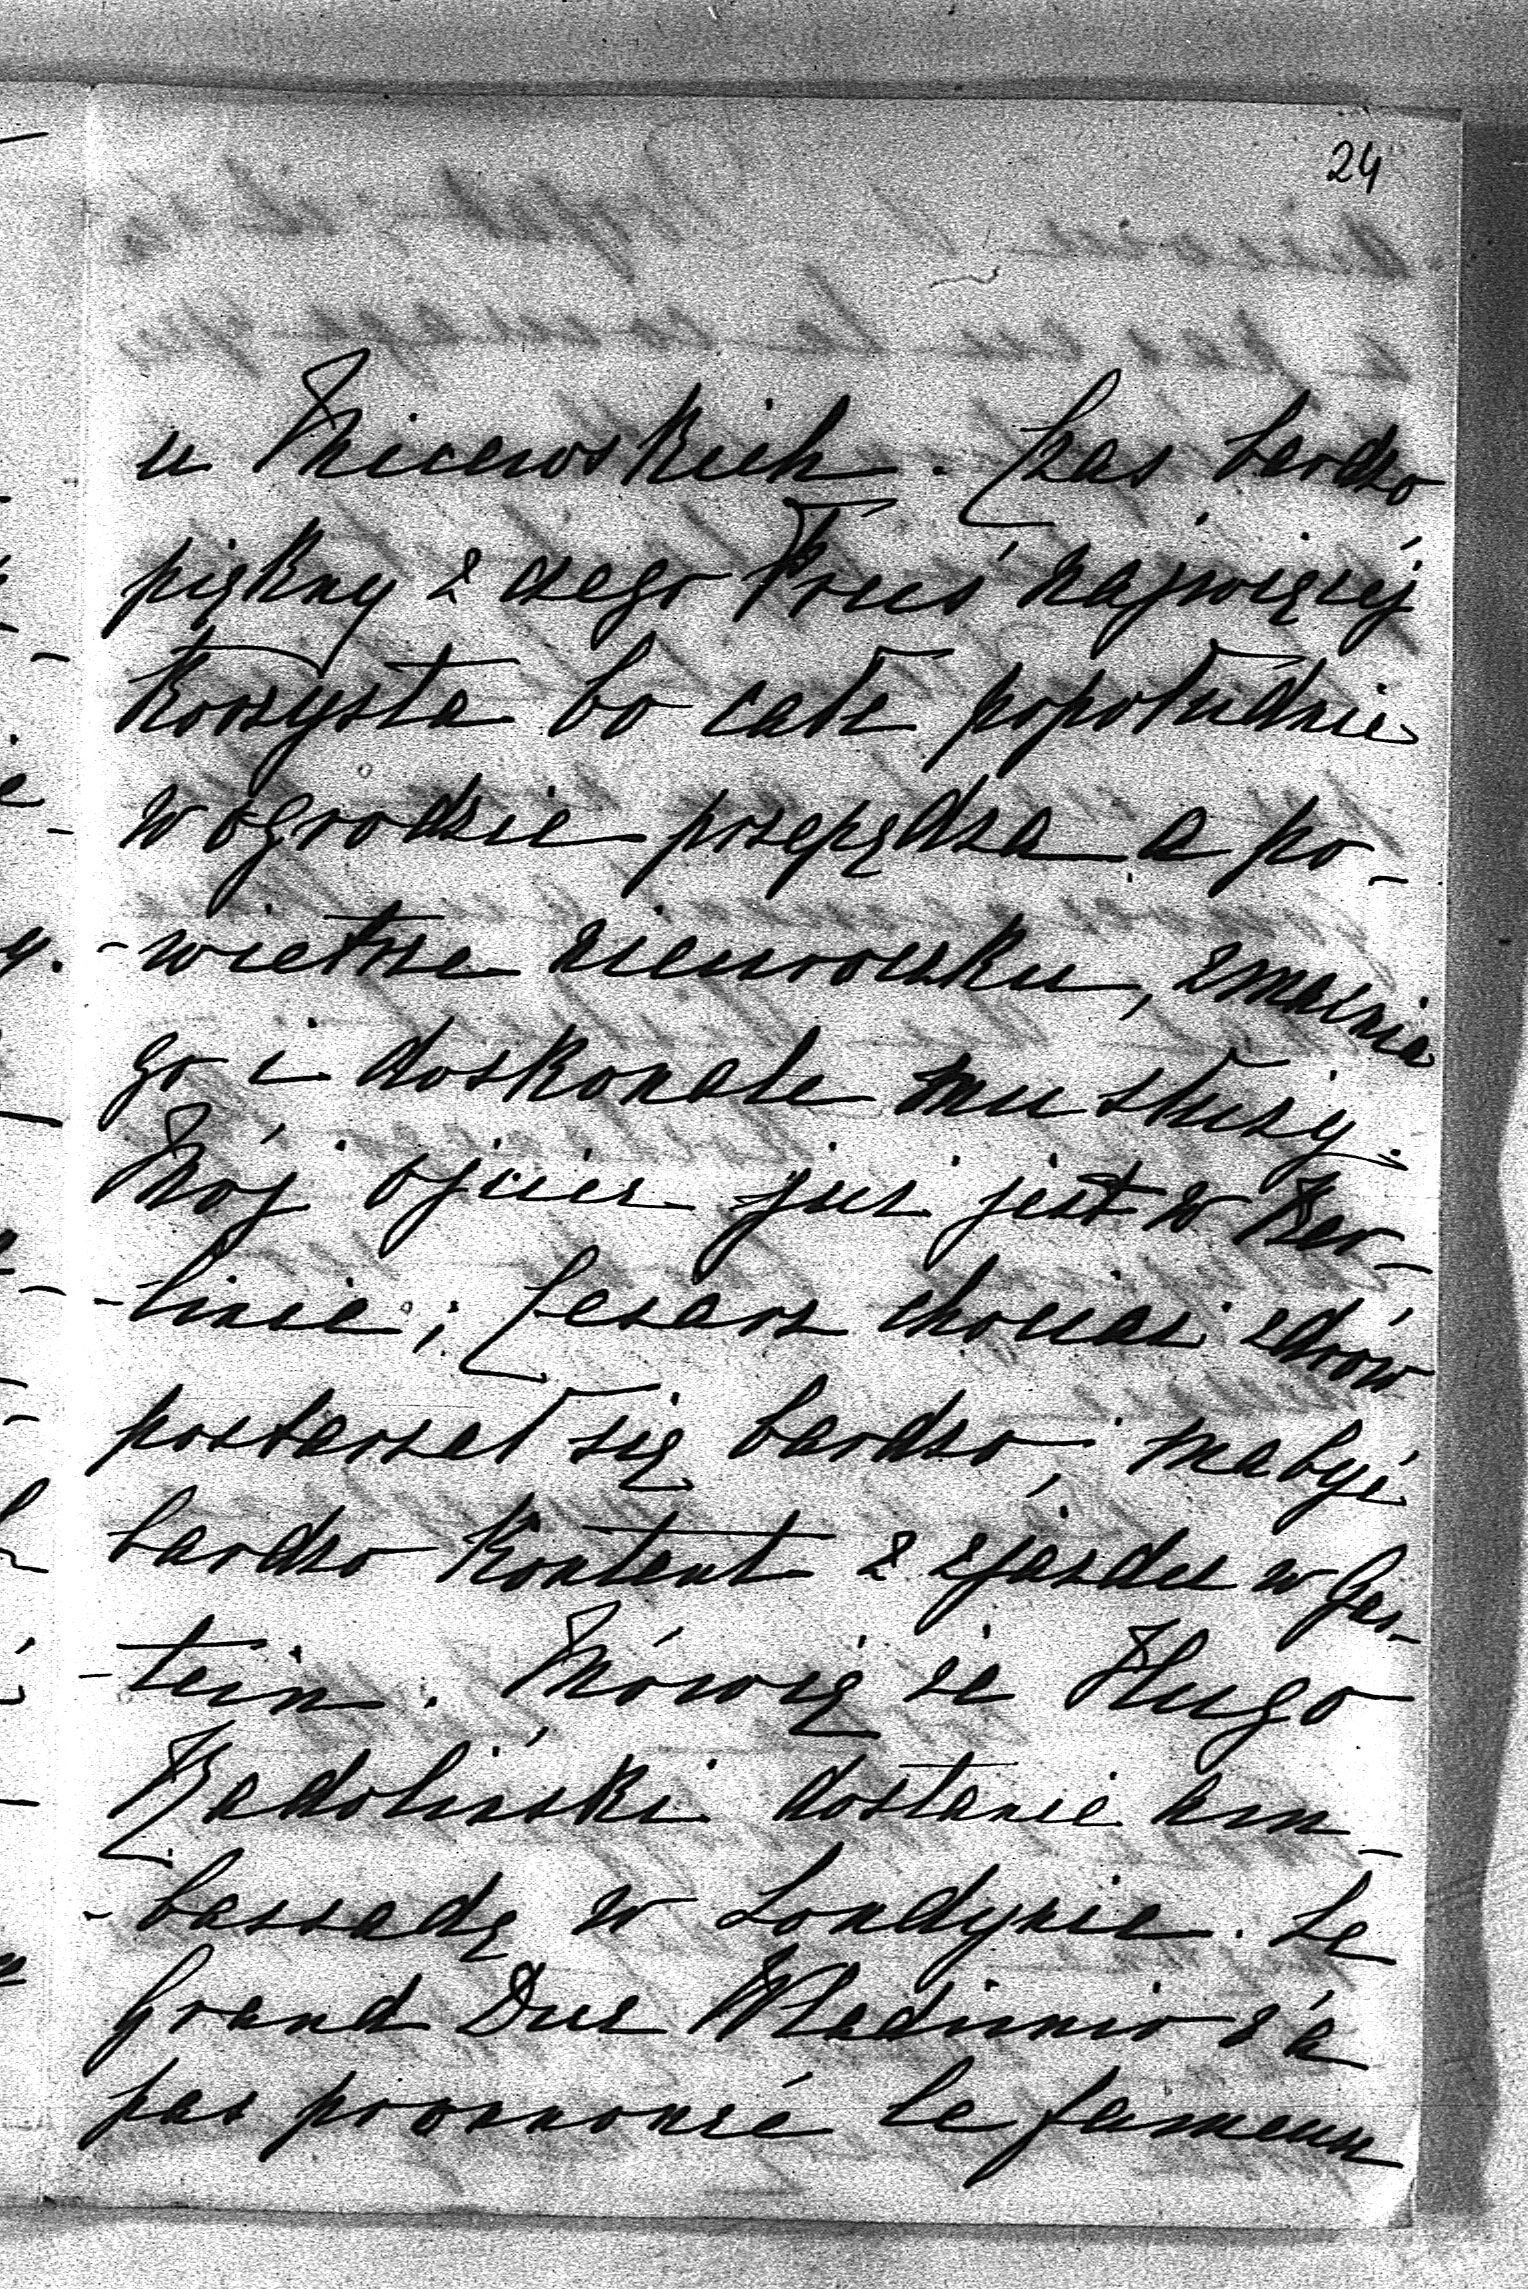 24
u Micewskich. Czas bardzo
piękny z czego Truś najwięcéj
korzysta bo całe popołudnie
w ogrodzie przepędza a po-
-wietrze nieurowsku, zmacnia
go i doskonale mu służy.
Mój ojciec już jest w Ber-
-linie; Cesarz chociaż zdrów
postarzał się bardzo, ma być
bardzo kontent z zjazdu w Gas-
-tein. Mówią że Hugo
Radoliński dostanie am-
-bassadę w Londynie. Le
Grand Duc Wladimir n'a
pas prononcé le fameux